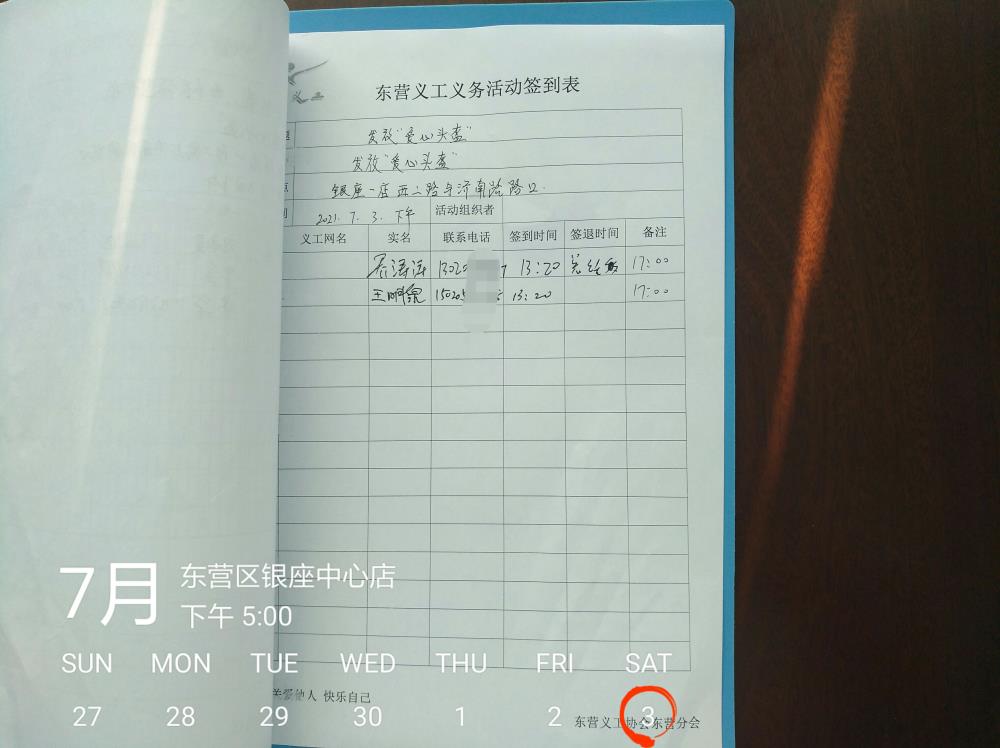 义工
东营义工义务活动签到表
发放"爱心头盔"
发放"爱心头盔"
点 银座一店西二路与济南路路口.
2021. 7. 3. 下午 活动组织者
义工网名 实名 联系电话 签到时间 签退时间 备注
涛涛 13020 7 13:20 17:00
王 15020 13:20 17:00
关爱他人 快乐自己
东营义工协会东营分会
7月 东营区银座中心店
下午 5:00
SUN MON TUE WED THU FRI SAT
27 28 29 30 1 2 3